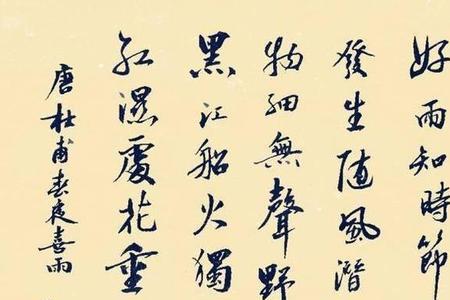 好雨知時節
發生随風潛
物細無聲野
黑江船火獨
紅濕處花重
唐杜甫春夜喜雨